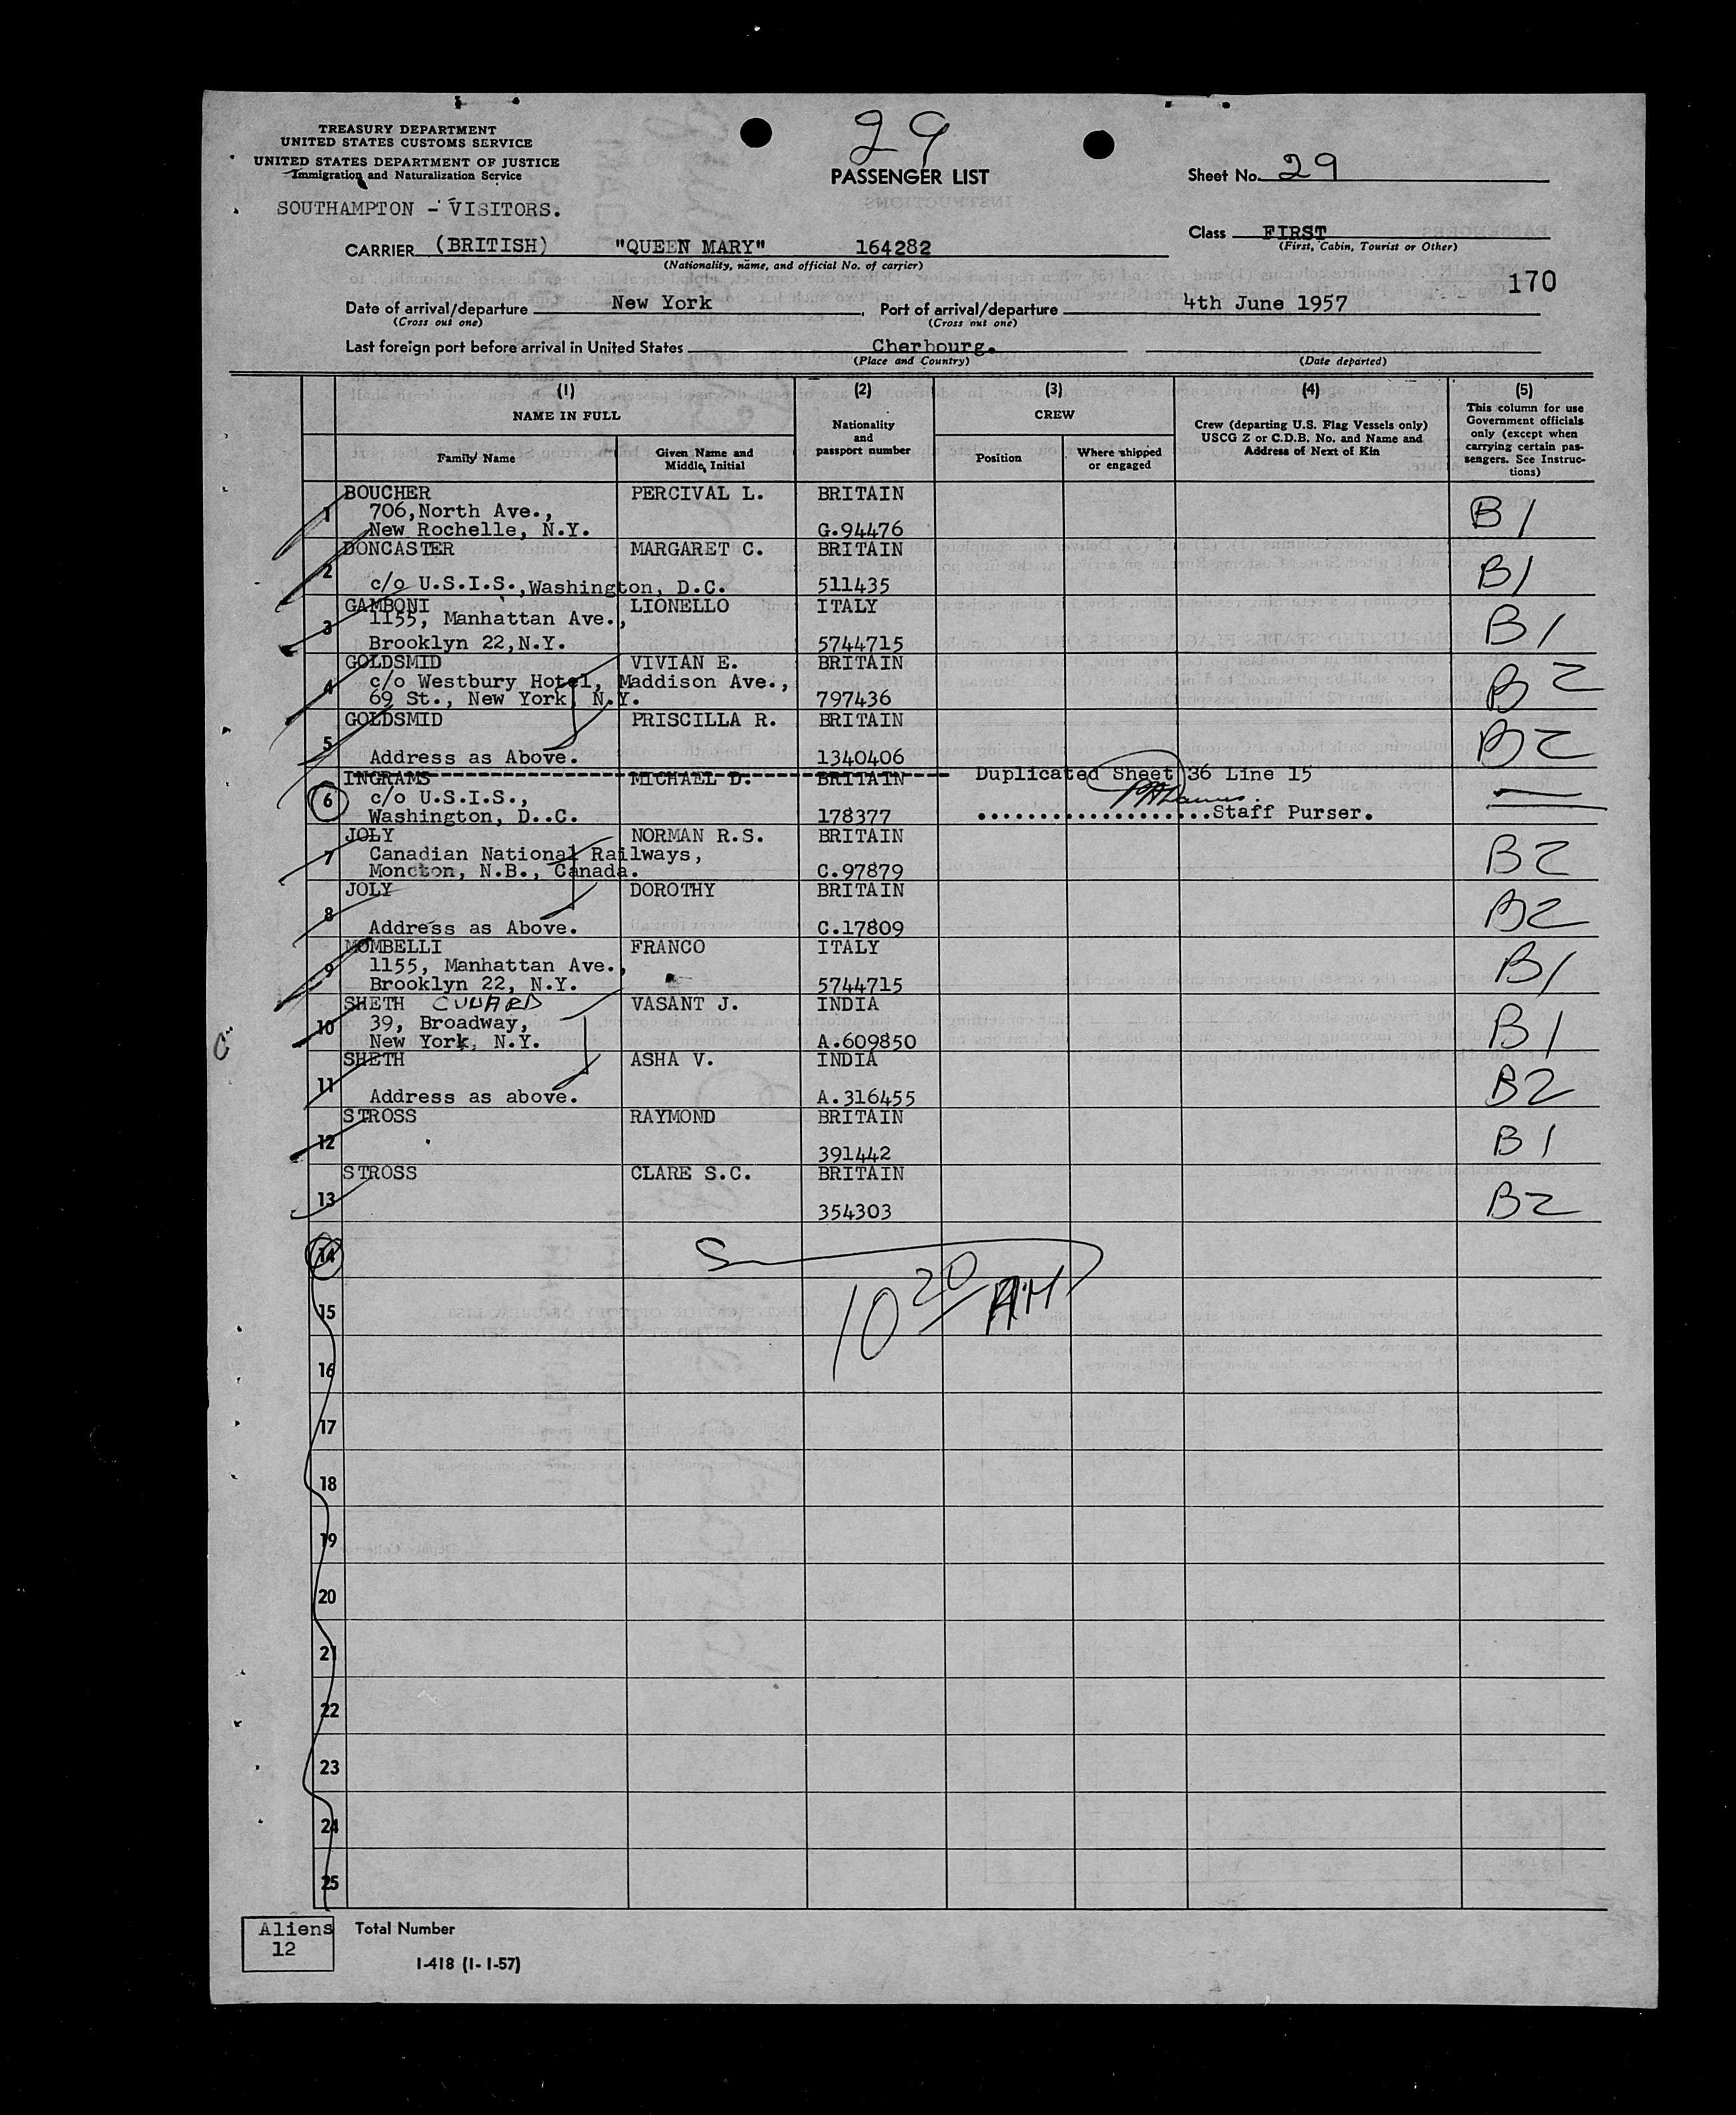 TREASURY DEPARTMENT
UNITED STATES CUSTOMS SERVICE
UNITED STATES DEPARTMENT OF JUSTICE
Immigration and Naturalization Service
29
PASSENGER LIST
Sheet No. 29
SOUTHAMPTON - VISITORS.
Class FIRST
(First, Cabin, Tourist or Other)
CARRIER (BRITISH) "QUEEN MARY" 164282
(Nationality, name, and official No. of carrier)
170
Date of arrival/departure New York, Port of arrival/departure 4th June 1957
(Cross out one) (Cross out one)
Last foreign port before arrival in United States Cherbourg.
(Place and Country) (Date departed)
(1) (2) (3) (4) (5)
NAME IN FULL
Family Name
Given Name and Middle Initial
Nationality and passport number
CREW
Position
Where shipped or engaged
Crew (departing U.S. Flag Vessels only)
USCG Z or C.D.B. No. and Name and
Address of Next of Kin
This column for use
Government officials
only (except when
carrying certain pas-
sengers. See Instruc-
tions)
1 BOUCHER PERCIVAL L. BRITAIN B1
706,North Ave.,
New Rochelle, N.Y. G.94476
2 DONCASTER MARGARET C. BRITAIN B1
c/o U.S.I.S.,Washington, D.C. 511435
3 GAMBONI LIONELLO ITALY B1
1155, Manhattan Ave.,
Brooklyn 22,N.Y. 5744715
4 GOLDSMID VIVIAN E. BRITAIN B2
c/o Westbury Hotel, Maddison Ave.,
69 St., New York, N.Y. 797436
5 GOLDSMID PRISCILLA R. BRITAIN B2
Address as Above. 1340406
6 INGRAMS MICHAEL D. BRITAIN Duplicated Sheet 36 Line 15
c/o U.S.I.S.,
Washington, D..C. 178377 ...................Staff Purser.
7 JOLY NORMAN R.S. BRITAIN B2
Canadian National Railways,
Moncton, N.B., Canada. C.97879
8 JOLY DOROTHY BRITAIN B2
Address as Above. C.17809
9 MOMBELLI FRANCO ITALY B1
1155, Manhattan Ave.,
Brooklyn 22, N.Y. 5744715
10 SHETH CUNARD VASANT J. INDIA B1
39, Broadway,
New York, N.Y. A.609850
11 SHETH ASHA V. INDIA B2
Address as above. A.316455
12 STROSS RAYMOND BRITAIN B1
391442
13 STROSS CLARE S.C. BRITAIN B2
354303
14
10 20 AM
15
16
17
18
19
20
21
22
23
24
25
Aliens
12
Total Number
I-418 (1-1-57)